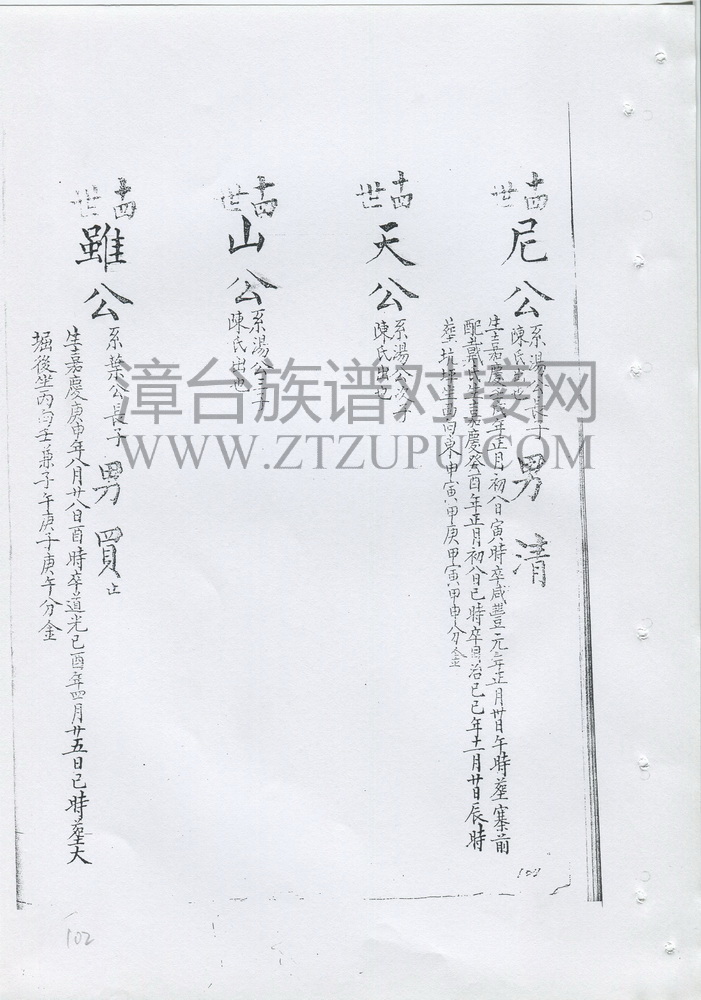 十四世
尼公
系湯公長子
陳氏出也
男清
生嘉慶 年正月初八日寅時卒咸豐元年正月廿日午時塟寨前
配戴氏生嘉慶癸酉年正月初八日巳時卒同治己巳年十一月廿日辰時
塟坑 坐西向東申寅甲庚甲寅甲申分金
十四世
天公
系湯公次子
陳氏出也
十四世
山公
系湯公三子
陳氏出也
十四世
雖公
系葉公長子
男買
止
生嘉慶庚申年八月廿八日酉時卒道光己酉年四月廿五日巳時塟大
堀後坐丙向壬兼子午庚子庚午分金
漳台族谱对接网
WWW.ZTZUPU.COM
103
102